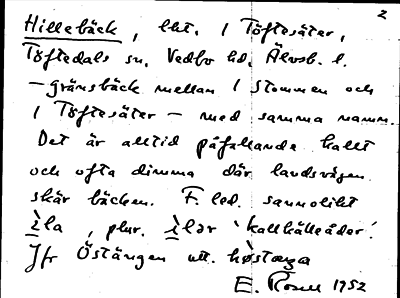 2
Hillebäck, bkt. / Töftesäter,
Töftedals sn, Vedbo hd. Älvsb. l.
- gränsbäck mellan / Stommen och
/ Töftesäter - med samma namn.
Det är alltid påfallande kallt
och ofta dimma där landsvägen
skär bäcken. F. led. sannolikt
ìla, plur. ìlər 'kallkälleåder'.
Jfr Östängen utt. høstæŋa
E. Rosell 1952